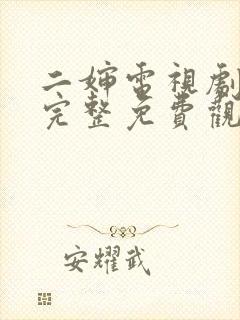 二婶電視劇
完整免費觀
安耀武